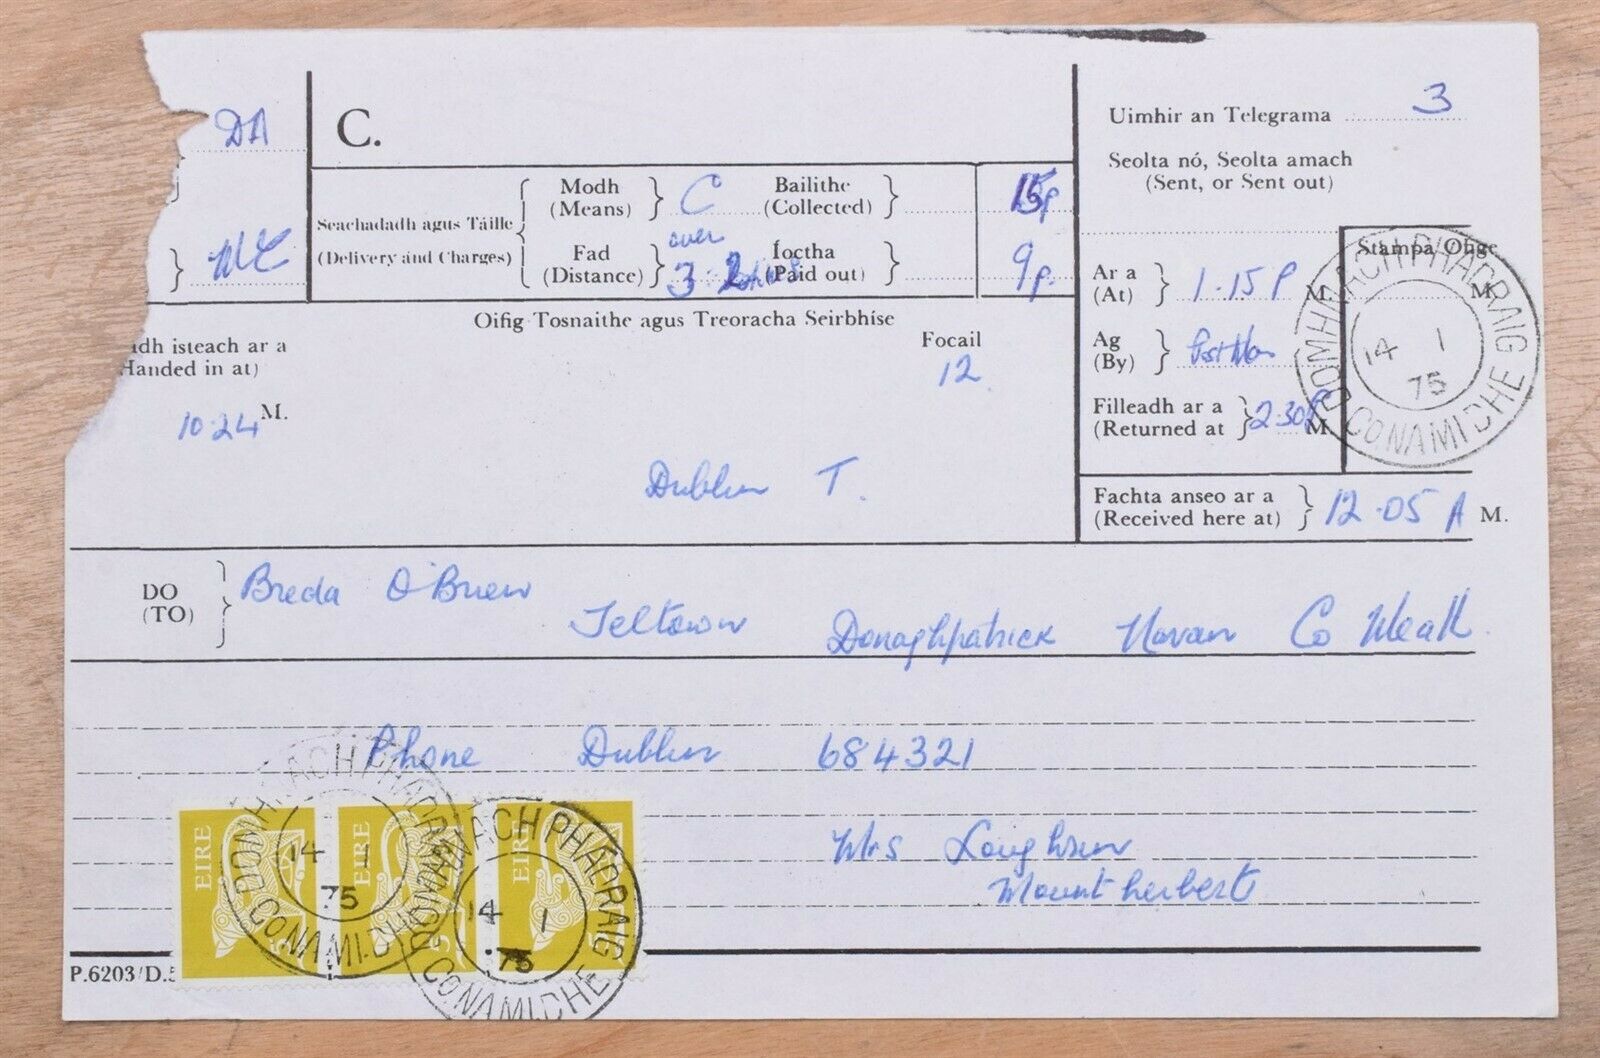 DA
C.
Uimhir an Telegrama 3
Seolta nó, Seolta amach
(Sent, or Sent out)
Seachadadh agus Táille
(Delivery and Charges)
Modh
(Means)
C
Bailithe
(Collected)
15p
Fad
(Distance)
over
3
Íoctha
(Paid out)
9p.
Stampa Oifige
M.
Ar a
(At)
1.15 P M.
Ag
(By)
Post Man
Filleadh ar a
(Returned at
2.30P M.
Fachta anseo ar a
(Received here at)
12.05 A M.
DOMHNACH PHADRAIG
14 1
75
CO NA MIDHE
Oifig Tosnaithe agus Treoracha Seirbhíse
Focail
12
dh isteach ar a
Handed in at)
10.24 M.
Dublin T.
DO
(TO)
Breda O'Brien
Teltown Donaghpatrick Navan Co Meath.
Phone Dublin 684321
Mrs
Mount herbert
EIRE
EIRE
EIRE
5
5
5
DOMHNACH PHADRAIG
14 1
75
CO NA MIDHE
DOMHNACH PHADRAIG
14 1
75
CO NA MIDHE
P.6203/D.5